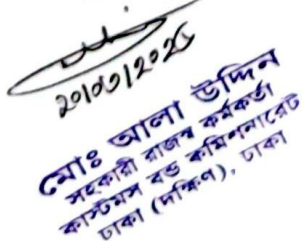 মোঃ আলা উদ্দিন
সহকারী রাজস্ব কর্মকর্তা
কাস্টমস বন্ড কমিশনারেট
ঢাকা (দক্ষিণ), ঢাকা